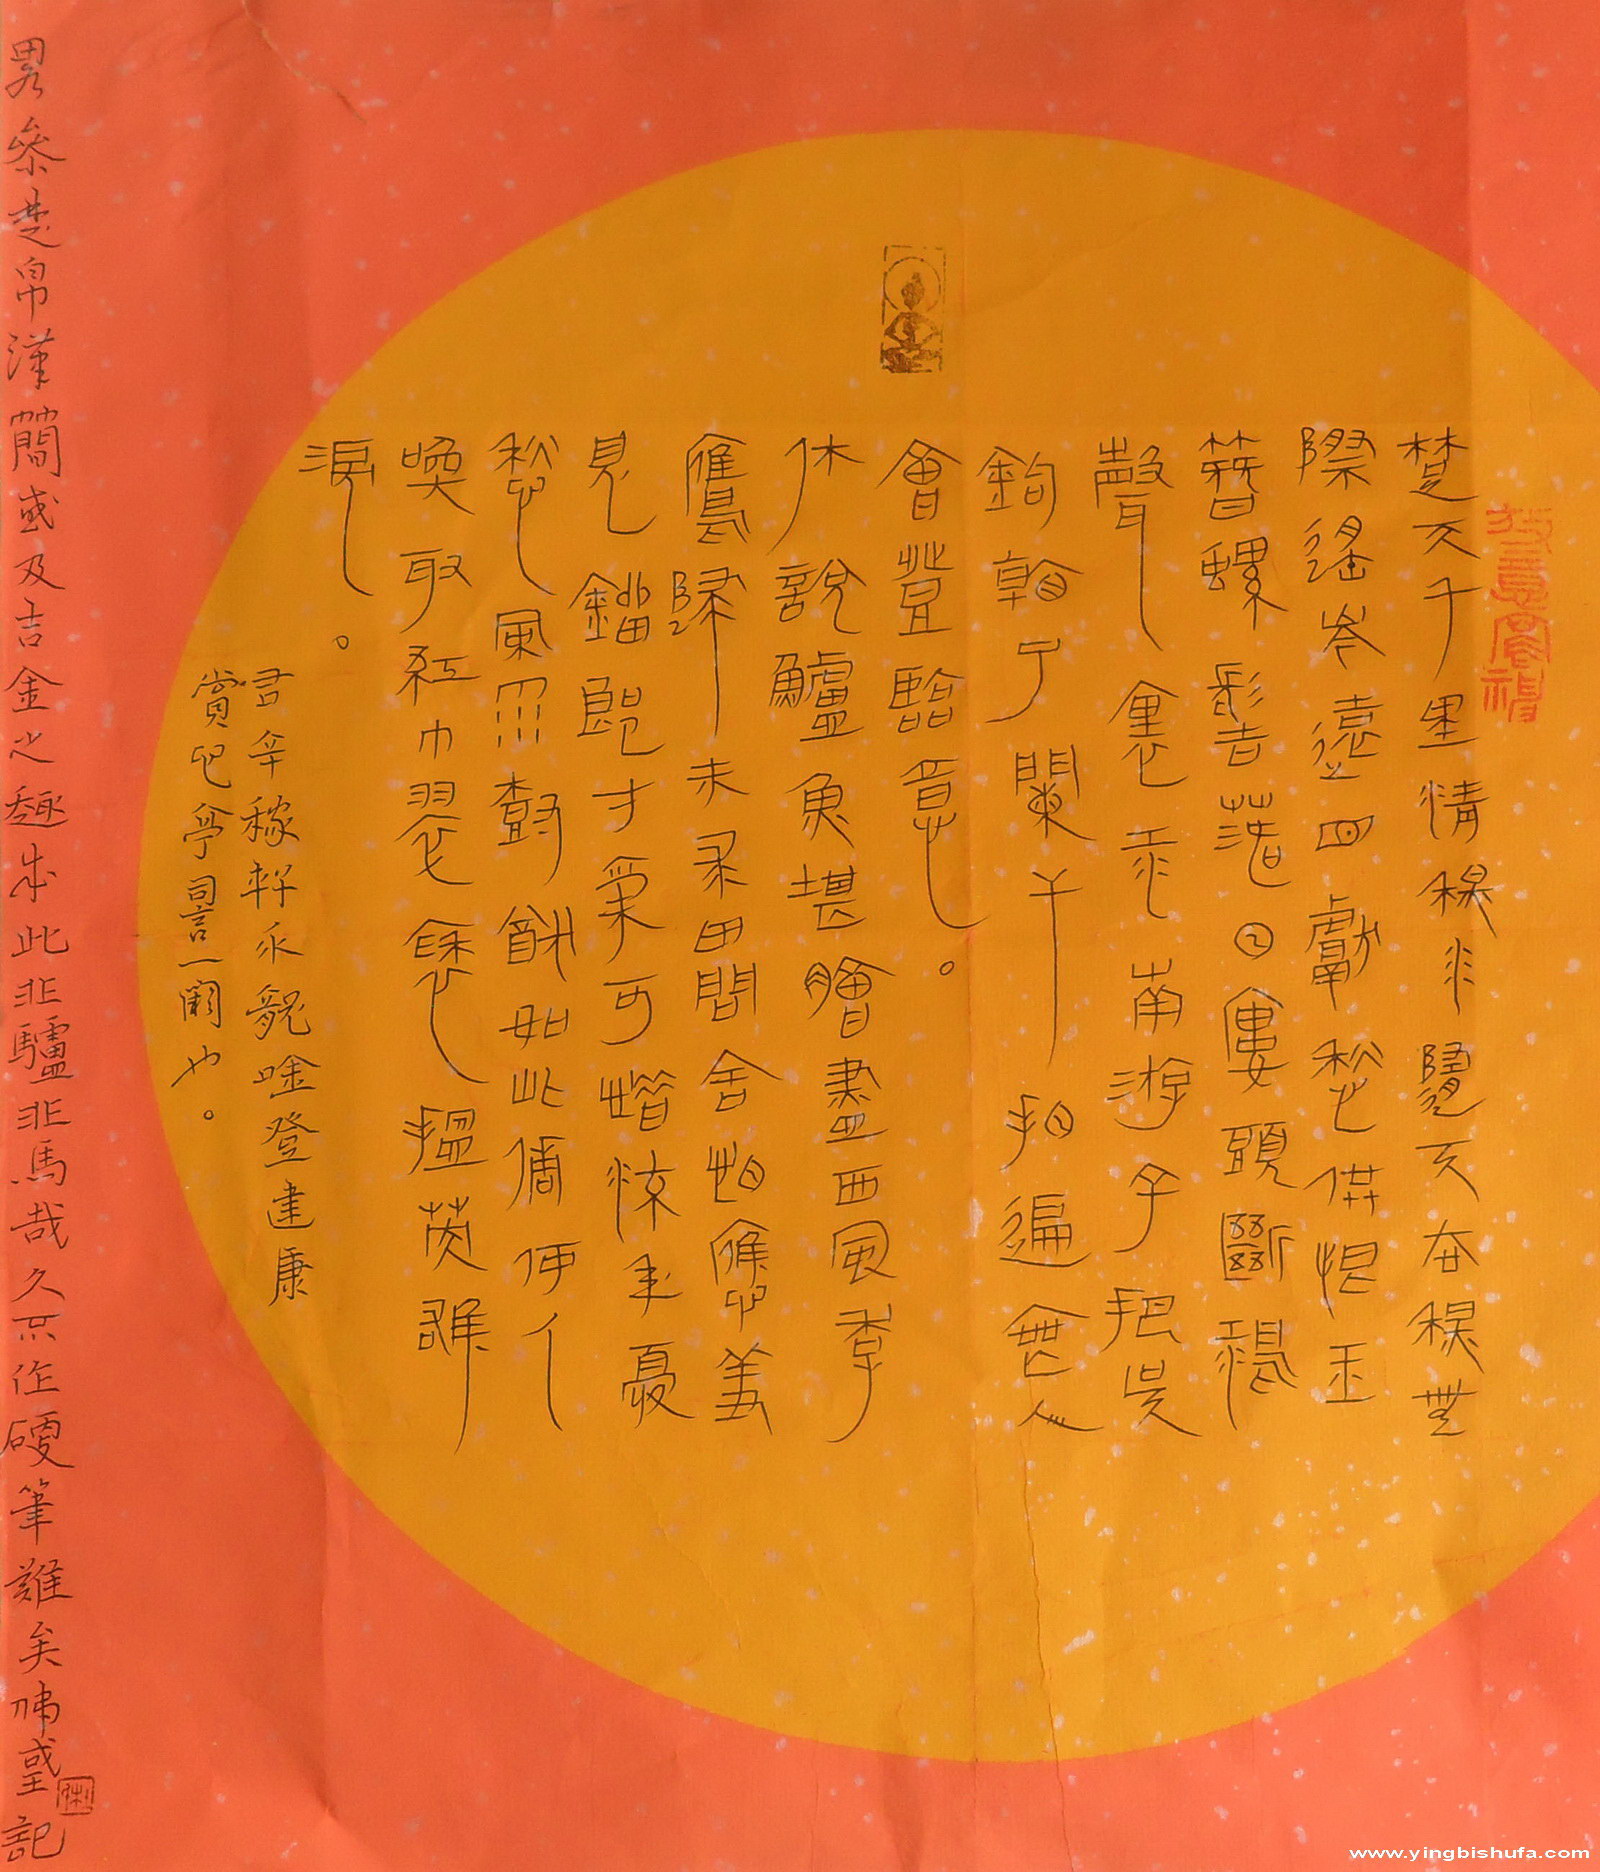 楚天千里清秋水隨天去秋無
際遙岑遠目獻愁供恨玉
簪螺髻落日樓頭斷鴻
聲裏江南游子把吳
鉤看了闌干拍遍無人
會登臨意。
休說鱸魚堪膾盡西風季
鷹歸未求田問舍怕應羞
見劉郎才氣可惜流年憂
愁風雨樹猶如此倩何人
喚取紅巾翠袖搵英雄
淚。
右辛稼軒水龍吟登建康
賞心亭詞一闋也。
畧參楚帛漢簡或及吉金之趣成此非驢非馬哉久不作硬筆難矣 記
www.yingbishufa.com